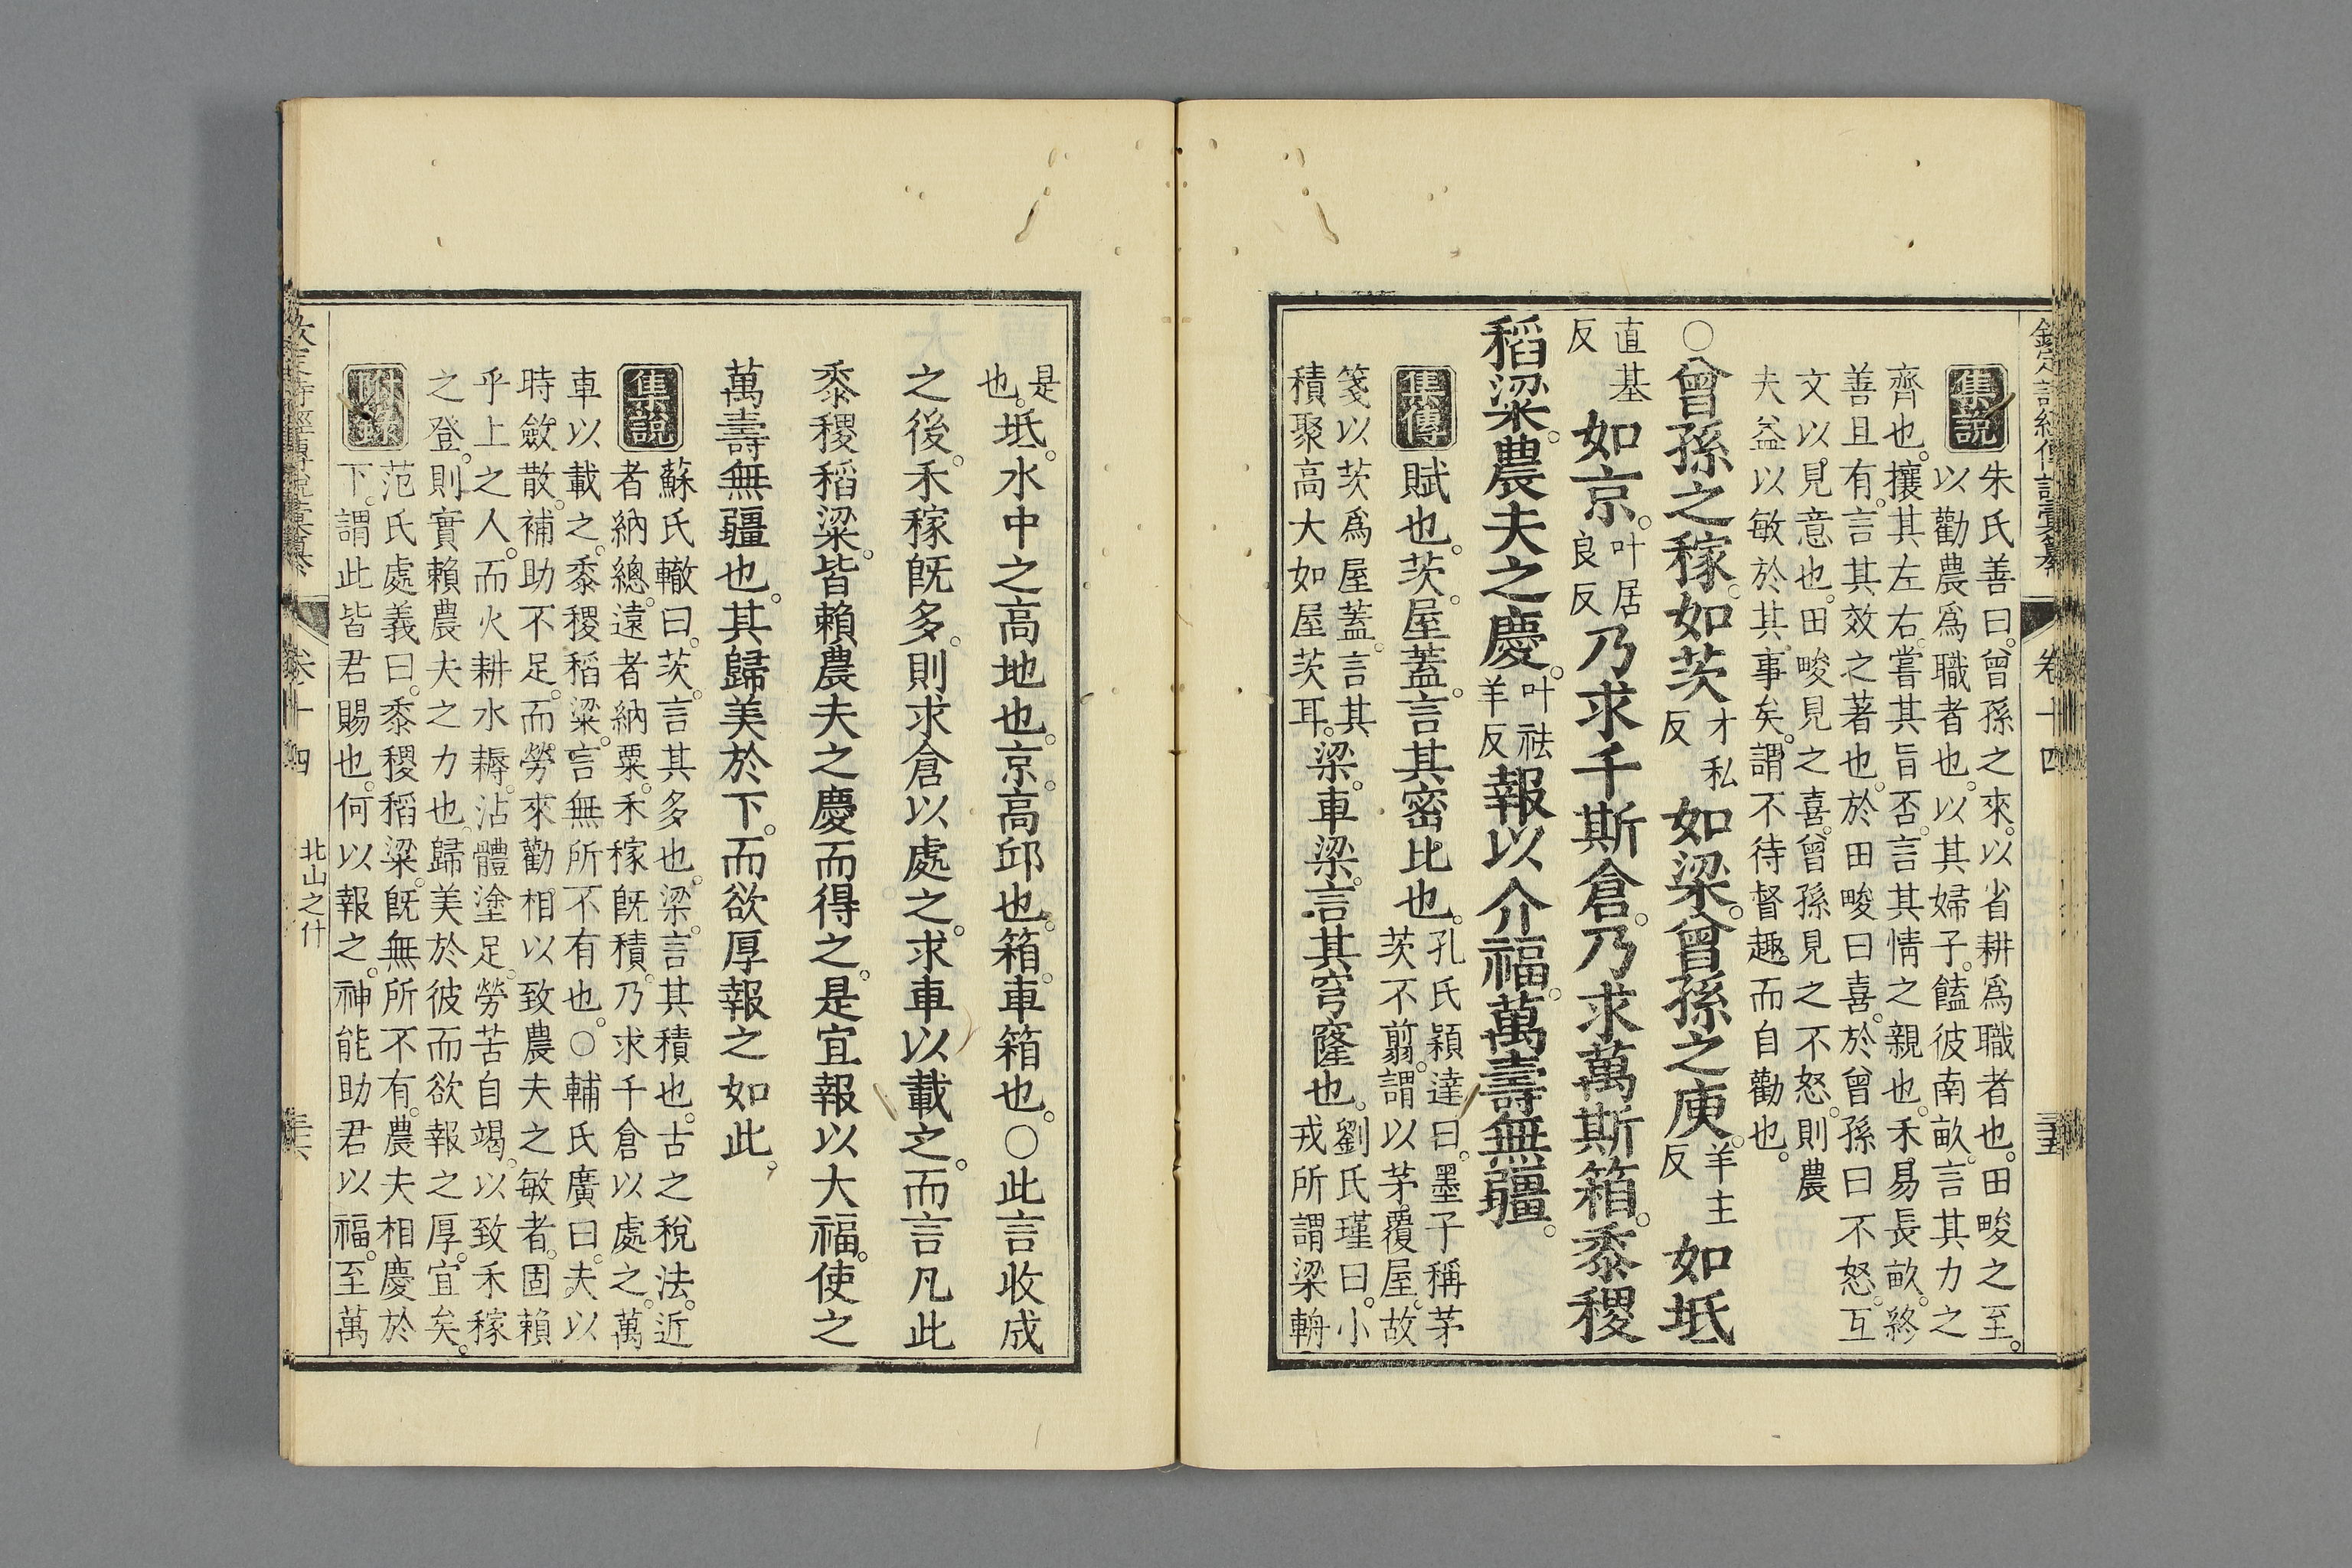 欽定詩經傳說彙纂 卷十四
集說 朱氏善曰。曾孫之來。以省耕為職者也。田畯之至。
以勸農為職者也。以其婦子。饁彼南畝。言其力之
齊也。攘其左右。嘗其旨否。言其情之親也。禾易長畝。終
善且有。言其效之著也。於田畯曰喜。於曾孫曰不怒。互
文以見意也。田畯見之喜。曾孫見之不怒。則農
夫益以敏於其事矣。謂不待督趣而自勸也。
○曾孫之稼。如茨才私反如梁。曾孫之庾。羊主反如坻
直基反如京。叶居良反乃求千斯倉。乃求萬斯箱。黍稷
稻梁。農夫之慶。叶祛羊反報以介福。萬壽無疆。
集傳 賦也。茨。屋蓋。言其密比也。孔氏穎達曰。墨子稱茅
茨不翦。謂以茅覆屋。故
箋以茨為屋蓋。言其
積聚高大如屋茨耳。梁。車梁。言其穹窿也。劉氏瑾曰。小
戎所謂梁輈
是
也。坻。水中之高地也。京。高邱也。箱。車箱也。○此言收成
之後。禾稼旣多。則求倉以處之。求車以載之。而言凡此
黍稷稻粱。皆賴農夫之慶而得之。是宜報以大福。使之
萬壽無疆也。其歸美於下。而欲厚報之如此。
集說 蘇氏轍曰。茨。言其多也。梁。言其積也。古之稅法。近
者納總。遠者納粟。禾稼旣積。乃求千倉以處之。萬
車以載之。黍稷稻粱。言無所不有也。○輔氏廣曰。夫以
時斂散。補助不足。而勞來勸相。以致農夫之敏者。固賴
乎上之人。而火耕水耨。沾體塗足。勞苦自竭。以致禾稼
之登。則實賴農夫之力也。歸美於彼而欲報之厚。宜矣。
附錄 范氏處義曰。黍稷稻粱。旣無所不有。農夫相慶於
下。謂此皆君賜也。何以報之。神能助君以福。至萬
卷十四 北山之什